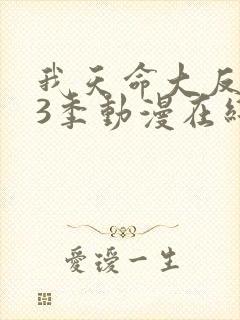 我天命大反
3季動漫在
愛瑷一生